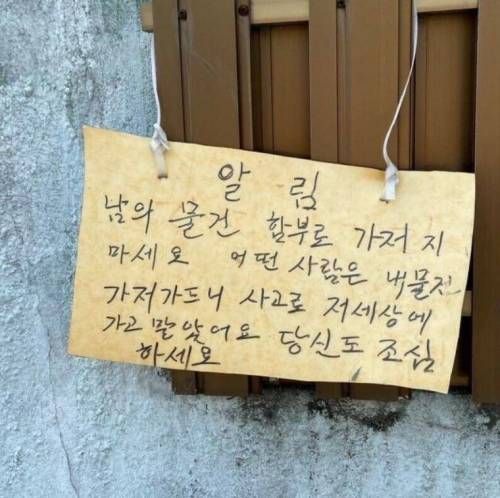 알림
남의 물건 함부로 가저 지
마세요 어떤 사람은 내물건
가저가드니 사고로 저세상에
가고 말았어요 당신도 조심
하세요